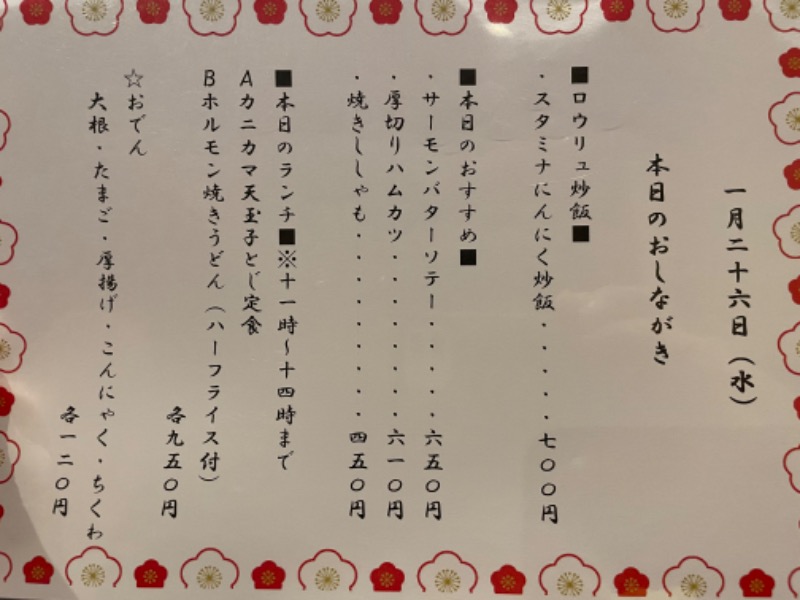 一月二十六日（水）
本日のおしながき
■ロウリュ炒飯■
・スタミナにんにく炒飯・・・・・七〇〇円
■本日のおすすめ■
・サーモンバターソテー・・・・・六五〇円
・厚切りハムカツ・・・・・・・・六一〇円
・焼きししゃも・・・・・・・・・四五〇円
■本日のランチ■※十一時～十四時まで
Aカニカマ天玉子とじ定食
Bホルモン焼きうどん（ハーフライス付）
各九五〇円
☆おでん
大根・たまご・厚揚げ・こんにゃく・ちくわ
各一二〇円